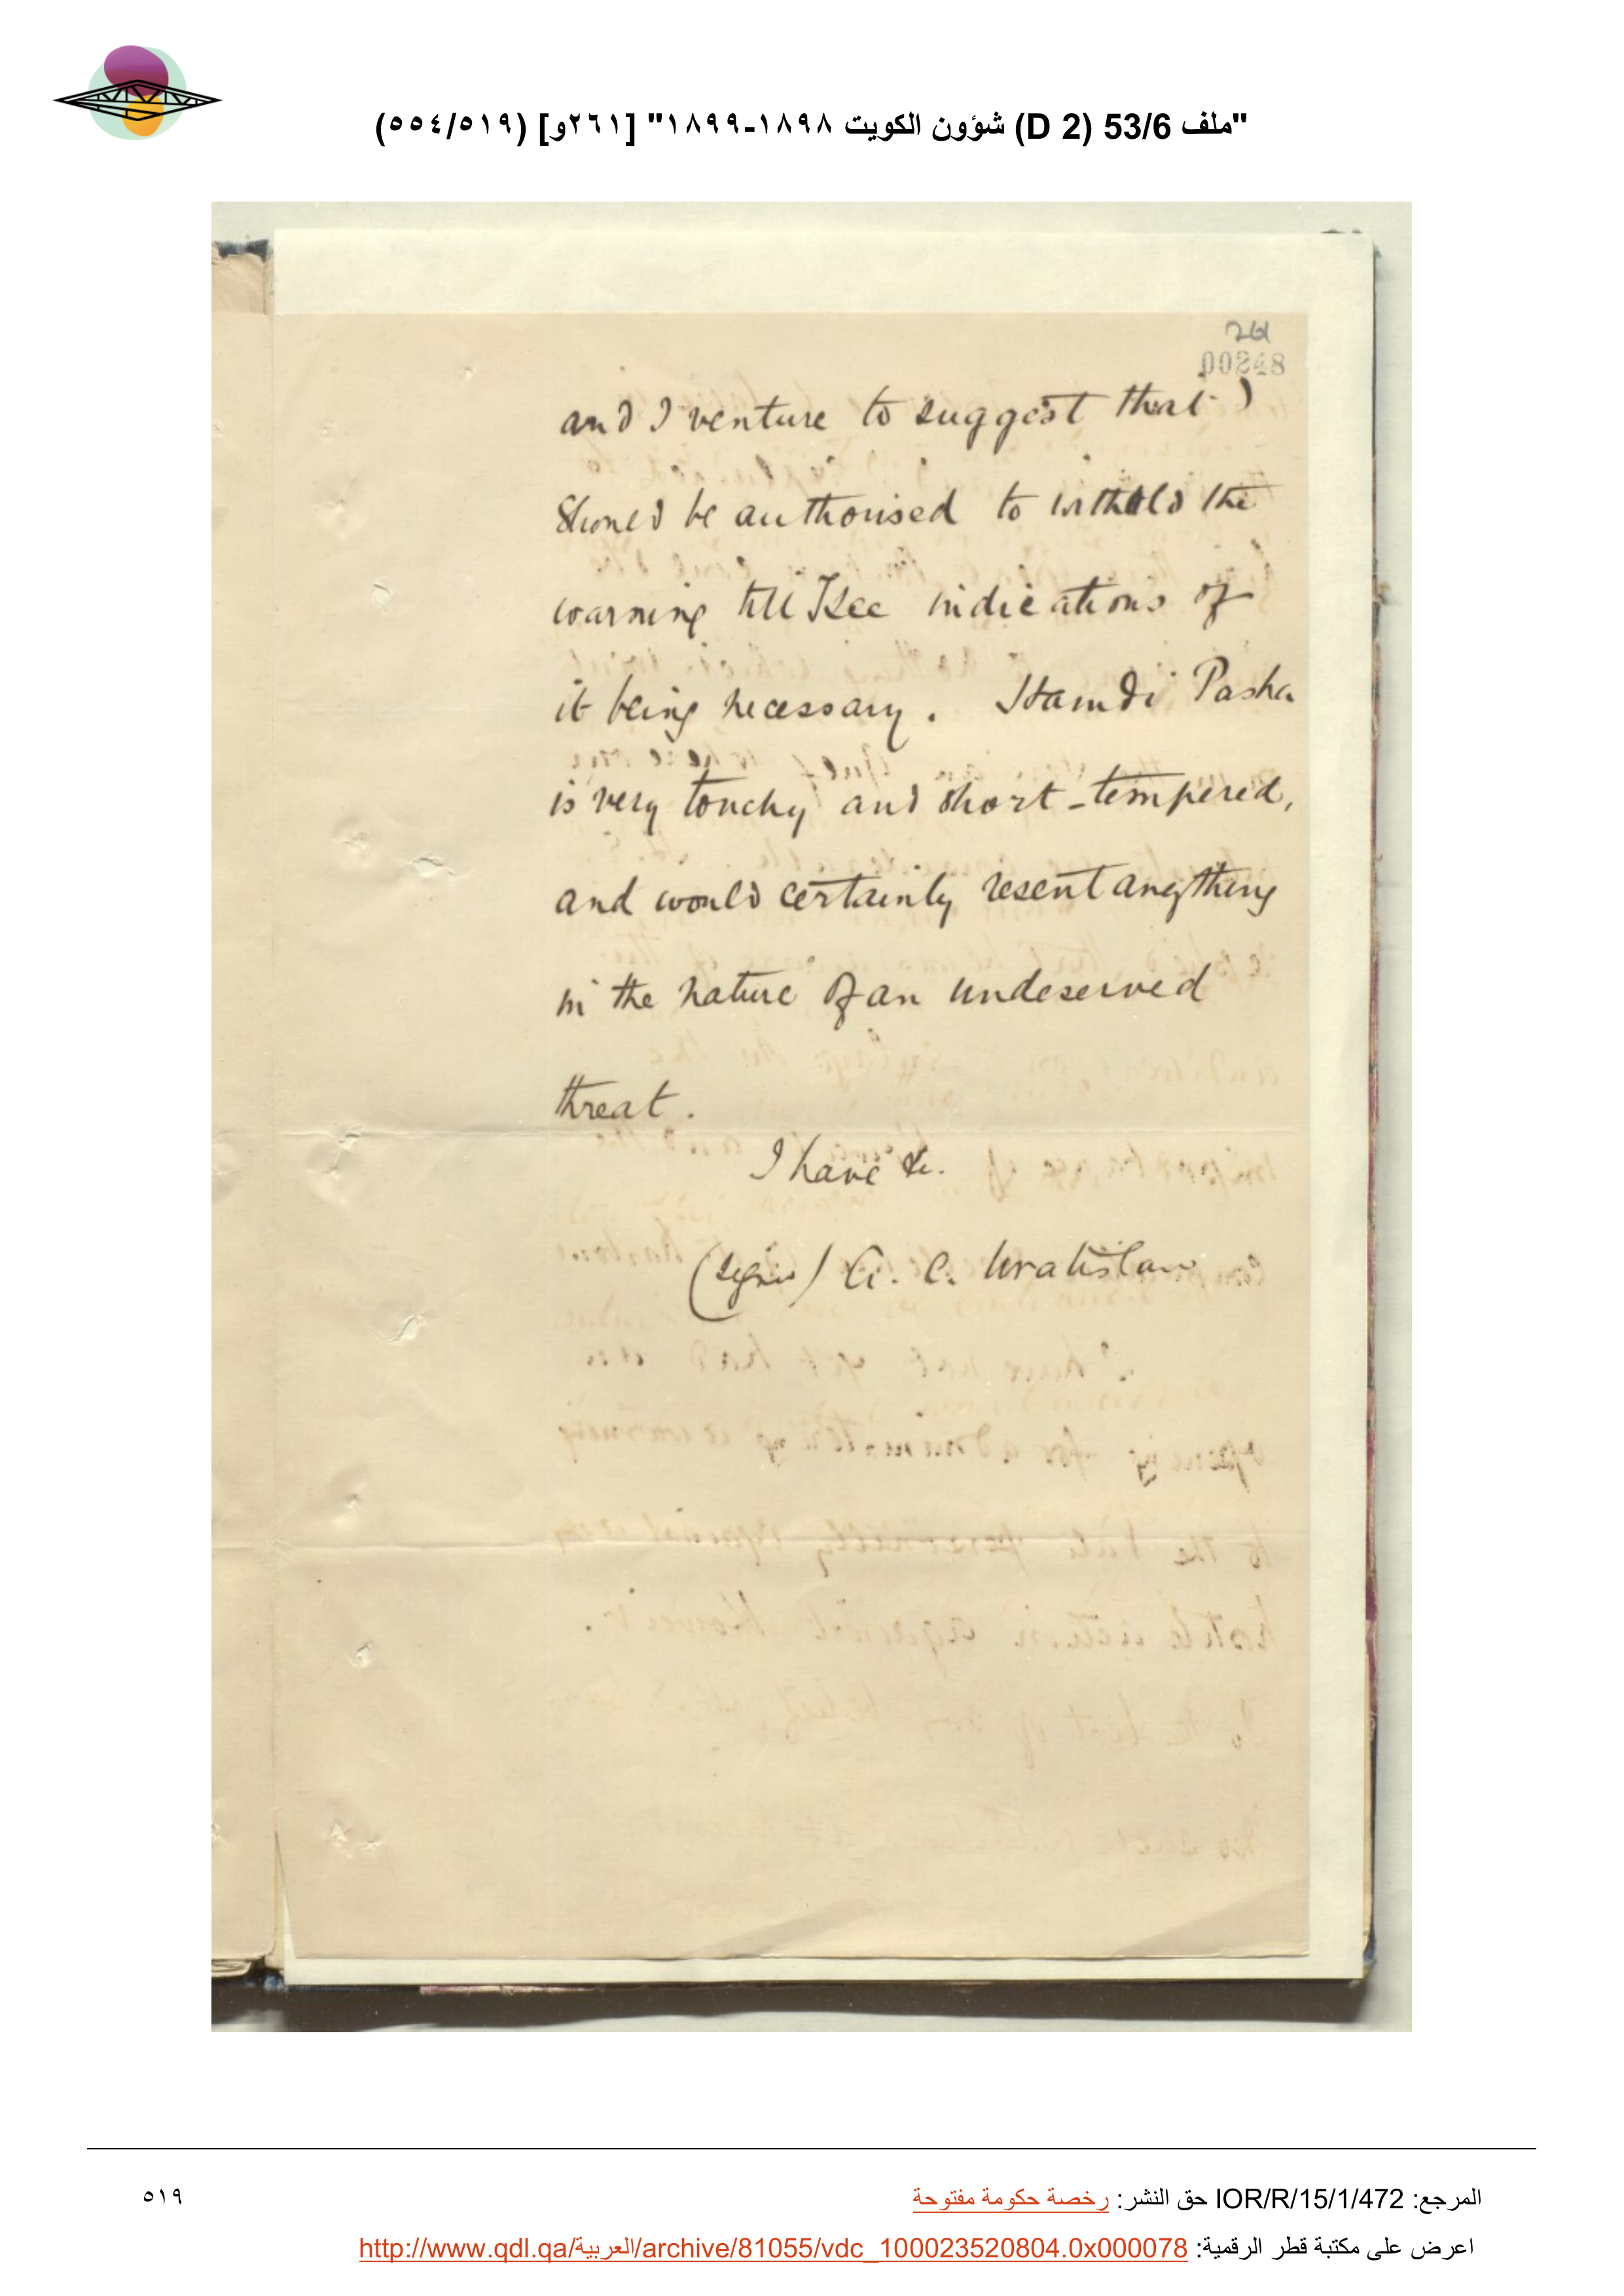 "ملف 53/6 (D 2) شؤون الكويت ١٨٩٨-١٨٩٩" [٢٦١و] (٥١٩/٥٥٤)
261
00248
and I venture to suggest that I
should be authorised to withold the
warning till I see indications of
it being necessary. Hamdi Pasha
is very touchy and short-tempered,
and would certainly resent anything
in the nature of an undeserved
threat.
I have &c.
(signed) A. C. Wratislaw
المرجع: IOR/R/15/1/472 حق النشر: رخصة حكومة مفتوحة
٥١٩
اعرض على مكتبة قطر الرقمية: http://www.qdl.qa/العربية/archive/81055/vdc_100023520804.0x000078